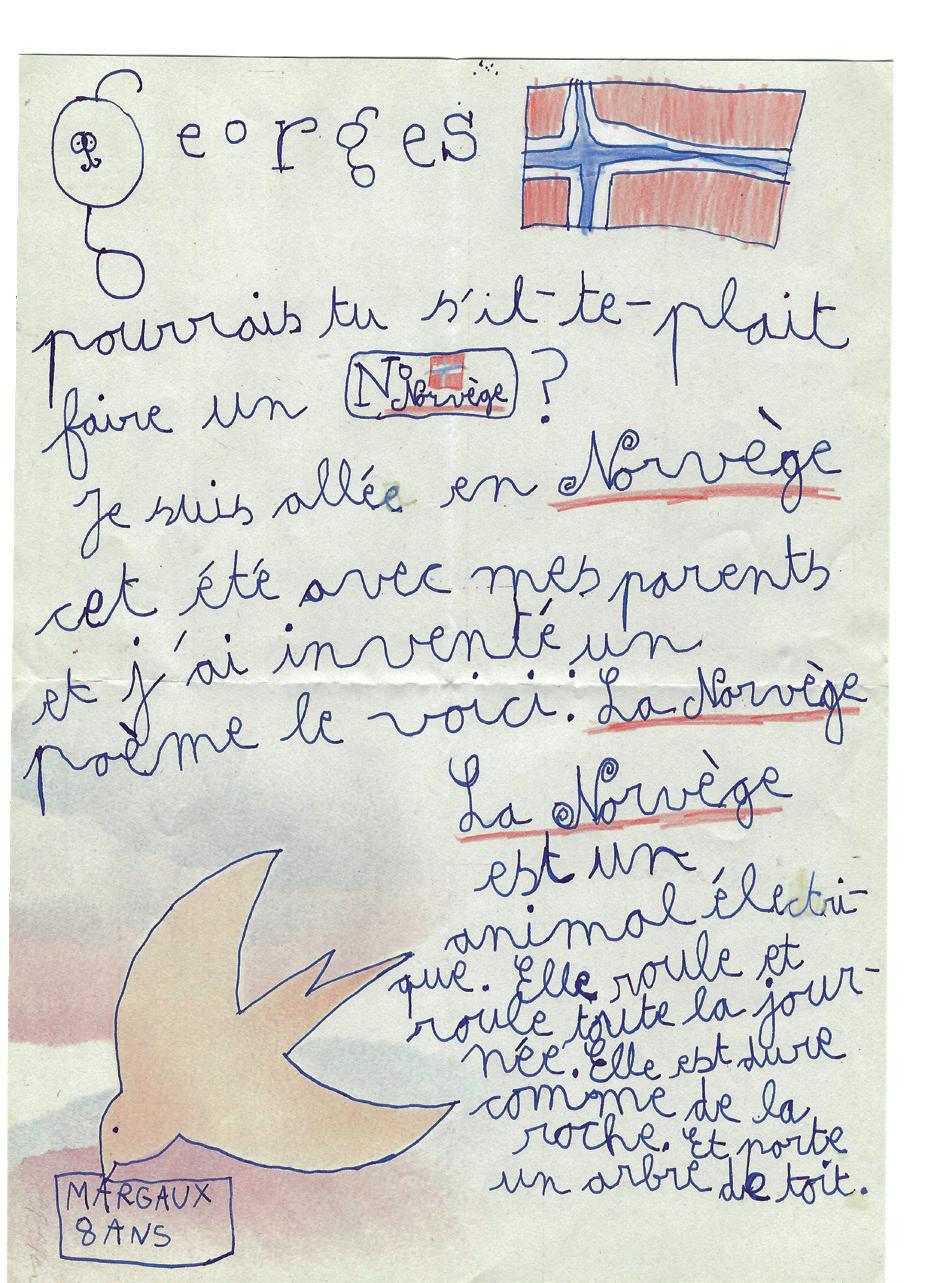 Georges
pourrais tu s'il-te-plait
faire un N° Norvège ?
Je suis allée en Norvège
cet été avec mes parents
et j'ai inventé un
poème le voici : La Norvège
La Norvège
est un
animal électri-
que. Elle roule et
roule toute la jour-
née. Elle est dure
comme de la
roche. Et porte
un arbre de toit.
MARGAUX
8 ANS